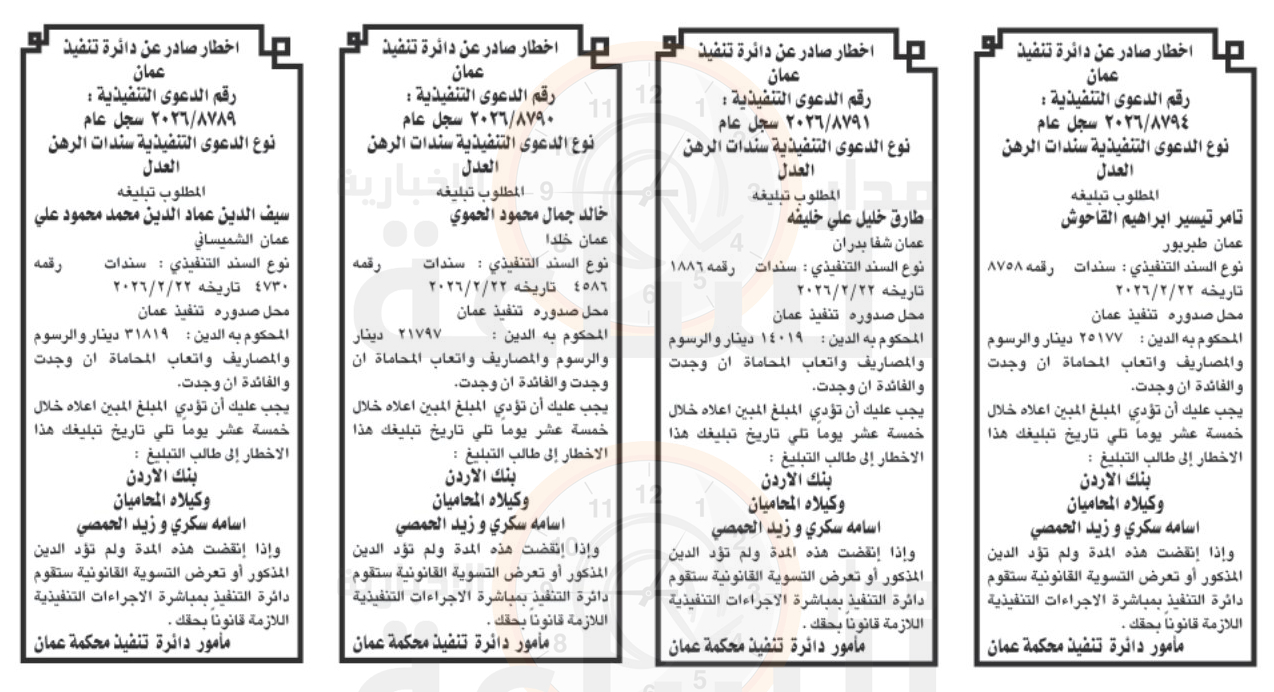 اخطار صادر عن دائرة تنفيذ
عمان
رقم الدعوى التنفيذية :
٢٠٢٦/٨٧٩٤ سجل عام
نوع الدعوى التنفيذية سندات الرهن
العدل
المطلوب تبليغه
تامر تيسير ابراهيم القاحوش
عمان طبربور
نوع السند التنفيذي : سندات رقمه ٨٧٥٨
تاريخه ٢٠٢٦/٢/٢٢
محل صدوره تنفيذ عمان
المحكوم به الدين : ٢٥١٧٧ دينار والرسوم
والمصاريف واتعاب المحاماة ان وجدت
والفائدة ان وجدت.
يجب عليك أن تؤدي المبلغ المبين اعلاه خلال
خمسة عشر يوماً تلي تاريخ تبليغك هذا
الاخطار إلى طالب التبليغ :
بنك الاردن
وكيلاه المحاميان
اسامه سكري و زيد الحمصي
وإذا إنقضت هذه المدة ولم تؤد الدين
المذكور أو تعرض التسوية القانونية ستقوم
دائرة التنفيذ بمباشرة الاجراءات التنفيذية
اللازمة قانوناً بحقك .
مأمور دائرة تنفيذ محكمة عمان
اخطار صادر عن دائرة تنفيذ
عمان
رقم الدعوى التنفيذية :
٢٠٢٦/٨٧٩١ سجل عام
نوع الدعوى التنفيذية سندات الرهن
العدل
المطلوب تبليغه
طارق خليل علي خليفه
عمان شفا بدران
نوع السند التنفيذي : سندات رقمه ١٨٨٦
تاريخه ٢٠٢٦/٢/٢٢
محل صدوره تنفيذ عمان
المحكوم به الدين : ١٤٠١٩ دينار والرسوم
والمصاريف واتعاب المحاماة ان وجدت
والفائدة ان وجدت.
يجب عليك أن تؤدي المبلغ المبين اعلاه خلال
خمسة عشر يوماً تلي تاريخ تبليغك هذا
الاخطار إلى طالب التبليغ :
بنك الاردن
وكيلاه المحاميان
اسامه سكري و زيد الحمصي
وإذا إنقضت هذه المدة ولم تؤد الدين
المذكور أو تعرض التسوية القانونية ستقوم
دائرة التنفيذ بمباشرة الاجراءات التنفيذية
اللازمة قانوناً بحقك .
مأمور دائرة تنفيذ محكمة عمان
اخطار صادر عن دائرة تنفيذ
عمان
رقم الدعوى التنفيذية :
٢٠٢٦/٨٧٩٠ سجل عام
نوع الدعوى التنفيذية سندات الرهن
العدل
المطلوب تبليغه
خالد جمال محمود الحموي
عمان خلدا
نوع السند التنفيذي : سندات رقمه
٤٥٨٦ تاريخه ٢٠٢٦/٢/٢٢
محل صدوره تنفيذ عمان
المحكوم به الدين : ٢١٧٩٧ دينار
والرسوم والمصاريف واتعاب المحاماة ان
وجدت والفائدة ان وجدت.
يجب عليك أن تؤدي المبلغ المبين اعلاه خلال
خمسة عشر يوماً تلي تاريخ تبليغك هذا
الاخطار إلى طالب التبليغ :
بنك الاردن
وكيلاه المحاميان
اسامه سكري و زيد الحمصي
وإذا إنقضت هذه المدة ولم تؤد الدين
المذكور أو تعرض التسوية القانونية ستقوم
دائرة التنفيذ بمباشرة الاجراءات التنفيذية
اللازمة قانوناً بحقك .
مأمور دائرة تنفيذ محكمة عمان
اخطار صادر عن دائرة تنفيذ
عمان
رقم الدعوى التنفيذية :
٢٠٢٦/٨٧٨٩ سجل عام
نوع الدعوى التنفيذية سندات الرهن
العدل
المطلوب تبليغه
سيف الدين عماد الدين محمد محمود علي
عمان الشميساني
نوع السند التنفيذي : سندات رقمه
٤٧٣٠ تاريخه ٢٠٢٦/٢/٢٢
محل صدوره تنفيذ عمان
المحكوم به الدين : ٣١٨١٩ دينار والرسوم
والمصاريف واتعاب المحاماة ان وجدت
والفائدة ان وجدت.
يجب عليك أن تؤدي المبلغ المبين اعلاه خلال
خمسة عشر يوماً تلي تاريخ تبليغك هذا
الاخطار إلى طالب التبليغ :
بنك الاردن
وكيلاه المحاميان
اسامه سكري و زيد الحمصي
وإذا إنقضت هذه المدة ولم تؤد الدين
المذكور أو تعرض التسوية القانونية ستقوم
دائرة التنفيذ بمباشرة الاجراءات التنفيذية
اللازمة قانوناً بحقك .
مأمور دائرة تنفيذ محكمة عمان